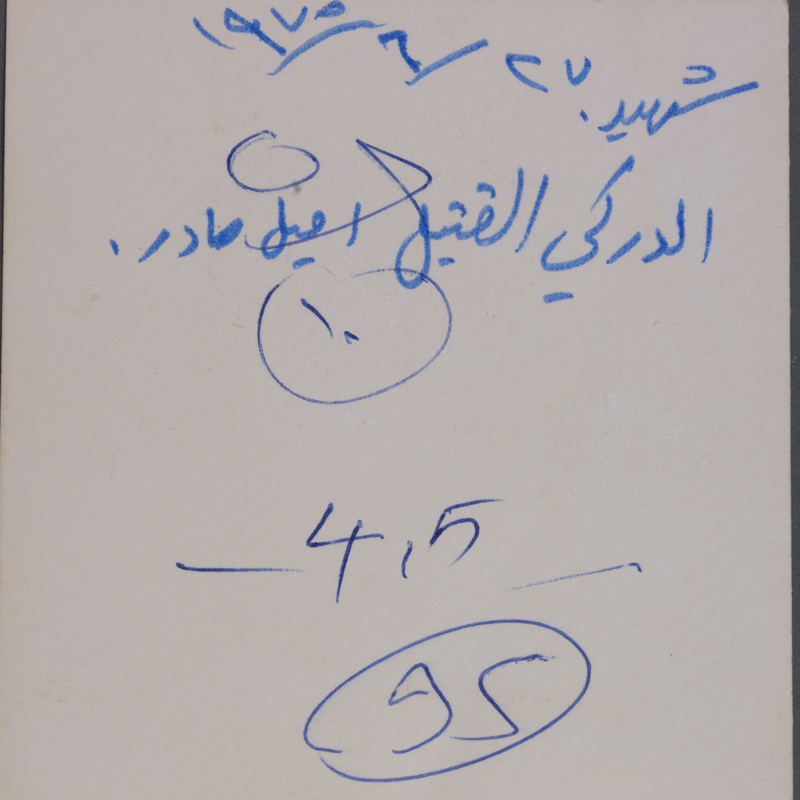 شهيد. ٢٧/٦/١٩٧٥
الدركي القتيل اميل صادر.
١٠
4,5
95